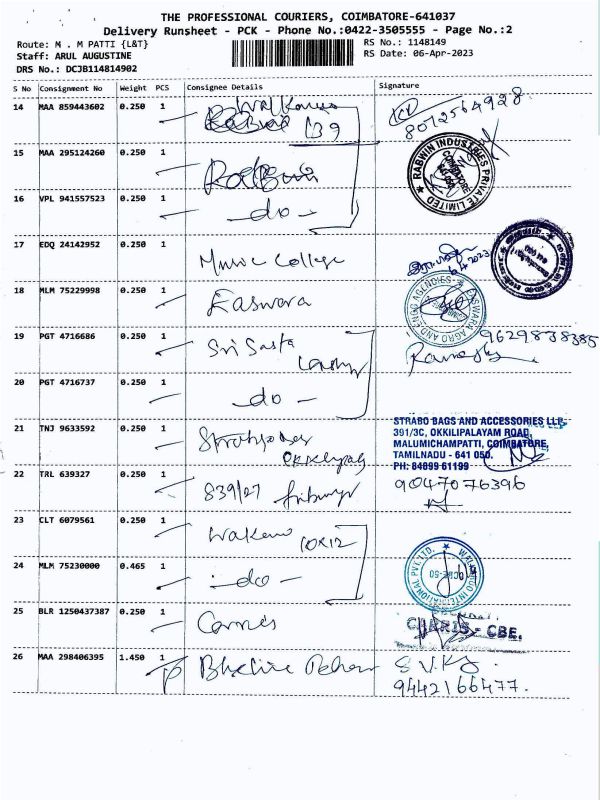 THE PROFESSIONAL COURIERS, COIMBATORE-641037
Delivery Runsheet - PCK - Phone No.:0422-3505555 - Page No.:2
Route: M . M PATTI {L&T}
RS No.: 1148149
Staff: ARUL AUGUSTINE
RS Date: 06-Apr-2023
DRS No.: DCJB114814902
S No Consignment No Weight PCS Consignee Details Signature
14 MAA 859443602 0.250 1 139 8072564928
15 MAA 295124260 0.250 1
RABWIN INDUSTRIES PRIVATE LIMITED
16 VPL 941557523 0.250 1 - do -
17 EDQ 24142952 0.250 1 Music College
18 MLM 75229998 0.250 1 Easwara
19 PGT 4716686 0.250 1 Sri Sasta 9629838385
20 PGT 4716737 0.250 1 - do -
21 TNJ 9633592 0.250 1
STRABO BAGS AND ACCESSORIES LLP.
391/3C, OKKILIPALAYAM ROAD,
MALUMICHAMPATTI, COIMBATORE,
TAMILNADU - 641 050.
PH: 84899 61199
22 TRL 639327 0.250 1 839/27 9047076396
23 CLT 6079561 0.250 1 10x12
24 MLM 75230000 0.465 1 - do -
25 BLR 1250437387 0.250 1
26 MAA 298406395 1.450 1
9442166477.